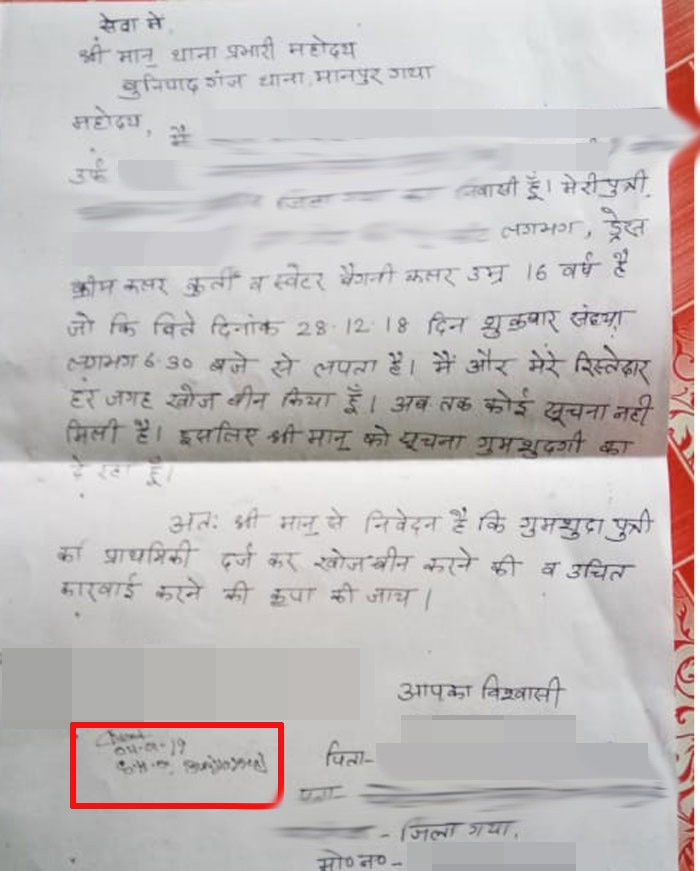 सेवा में,
श्री मान् थाना प्रभारी महोदय
बुनियाद गंज थाना, मानपुर गया
महोदय, मैं
उर्फ
जिला गया का निवासी हूँ। मेरी पुत्री
लगभग, ड्रेस
क्रीम कलर कुर्ती व स्वेटर बैगनी कलर उम्र 16 वर्ष है
जो कि विते दिनांक 28.12.18 दिन शुक्रवार संध्या
लगभग 6.30 बजे से लपता है। मैं और मेरे रिस्तेदार
हर जगह खोज बीन किया हूँ। अब तक कोई सूचना नही
मिली है। इसलिए श्री मान् को सूचना गुमशुदगी का
दे रहा हूँ।
अतः श्री मान् से निवेदन है कि गुमशुदा पुत्री
का प्राथमिकी दर्ज कर खोज-बीन करने की व उचित
कारवाई करने की कृपा की जाय।
आपका विश्वासी
04-01-19
पिता-
पता-
- जिला गया.
मो० न० -